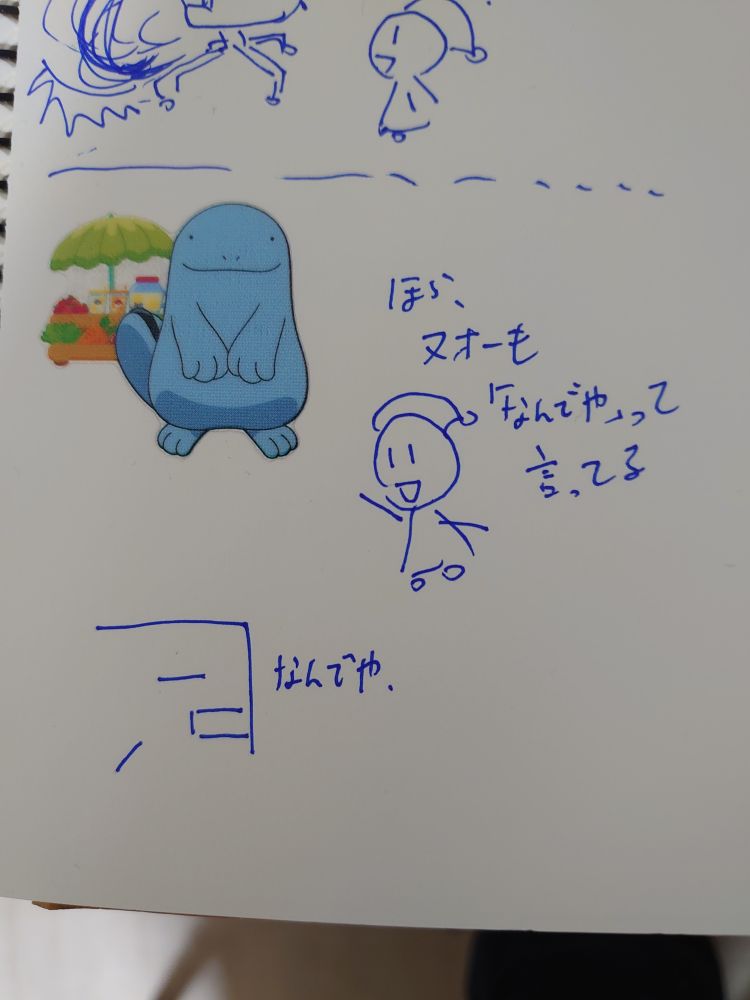 ほら、
ヌオーも
「なんでや」って
言ってる
なんでや.